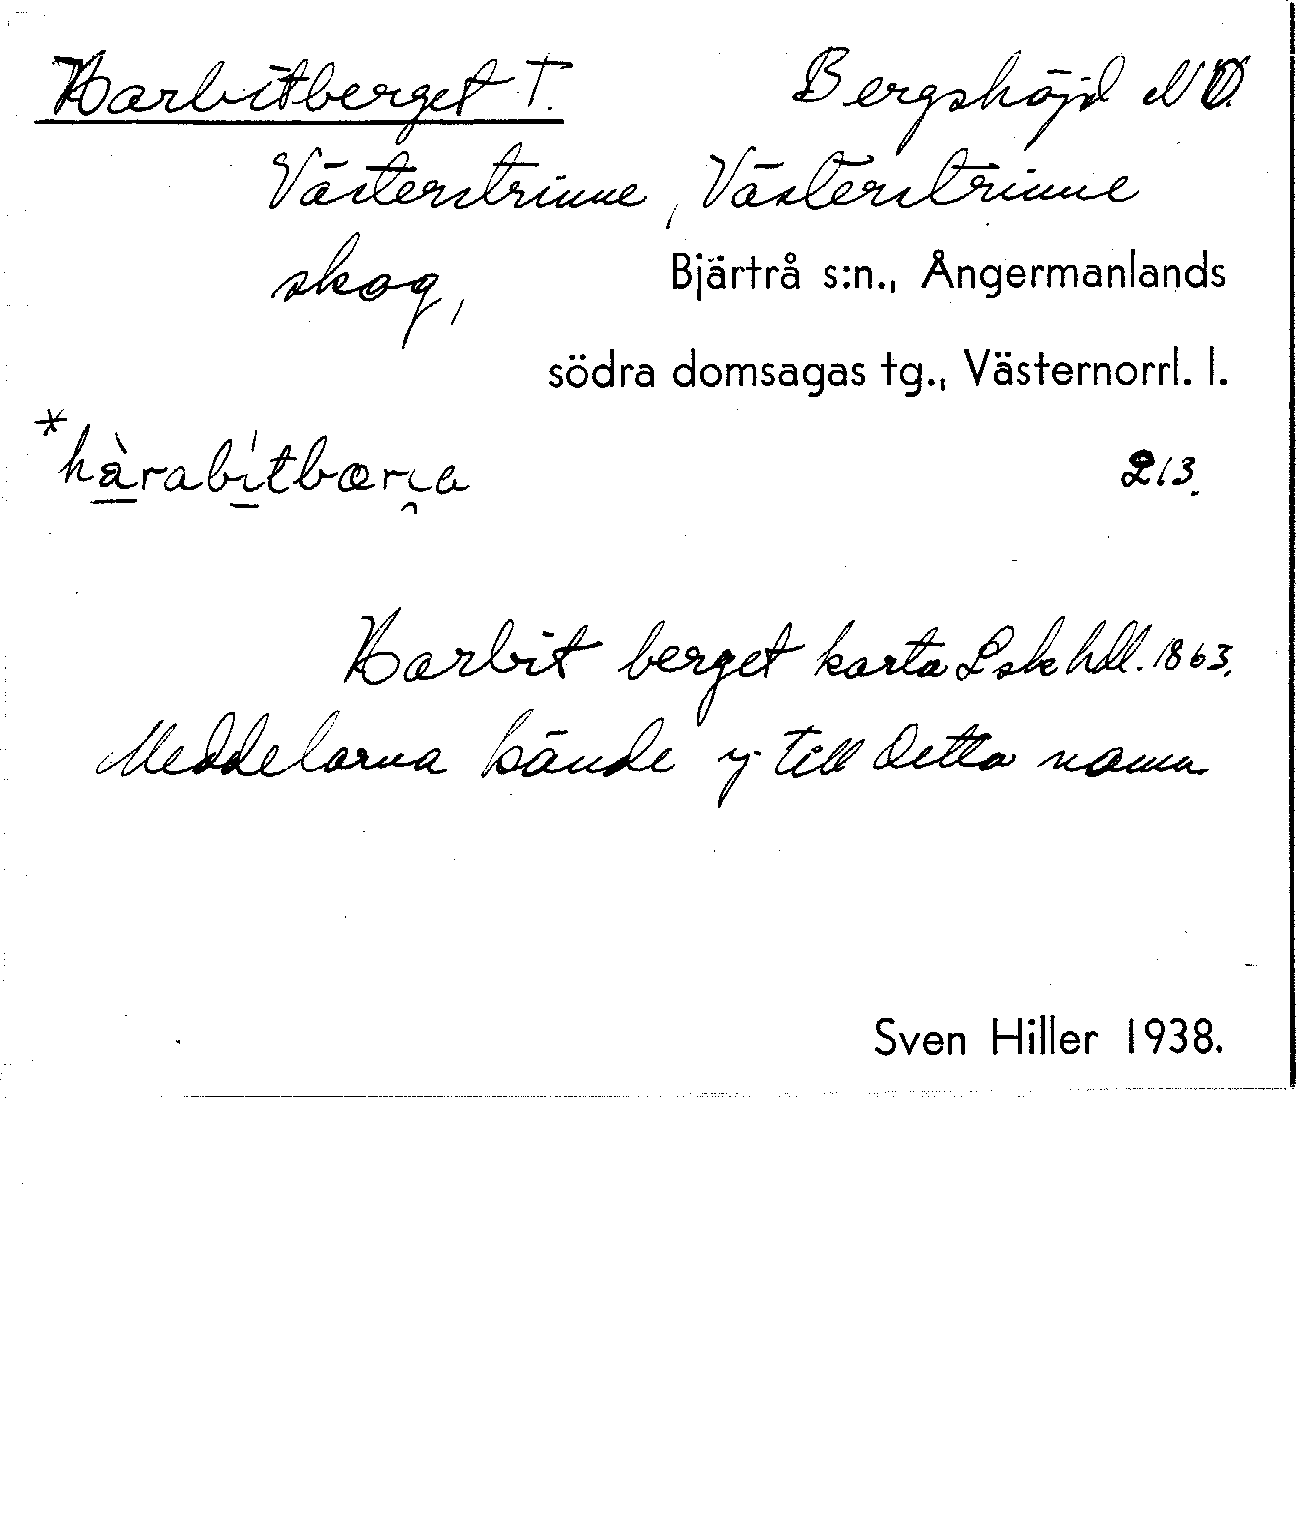 Harbitberget T. Bergshöjd NO.
Västerstrinne, Västerstrinne
skog, Bjärtrå s:n., Ångermanlands
södra domsagas tg., Västernorrl. l.
*hàrabı́tbærıa 213.
Harbit berget karta Lskhdl. 1863.
Meddelarna kände ej till detta namn
Sven Hiller 1938.